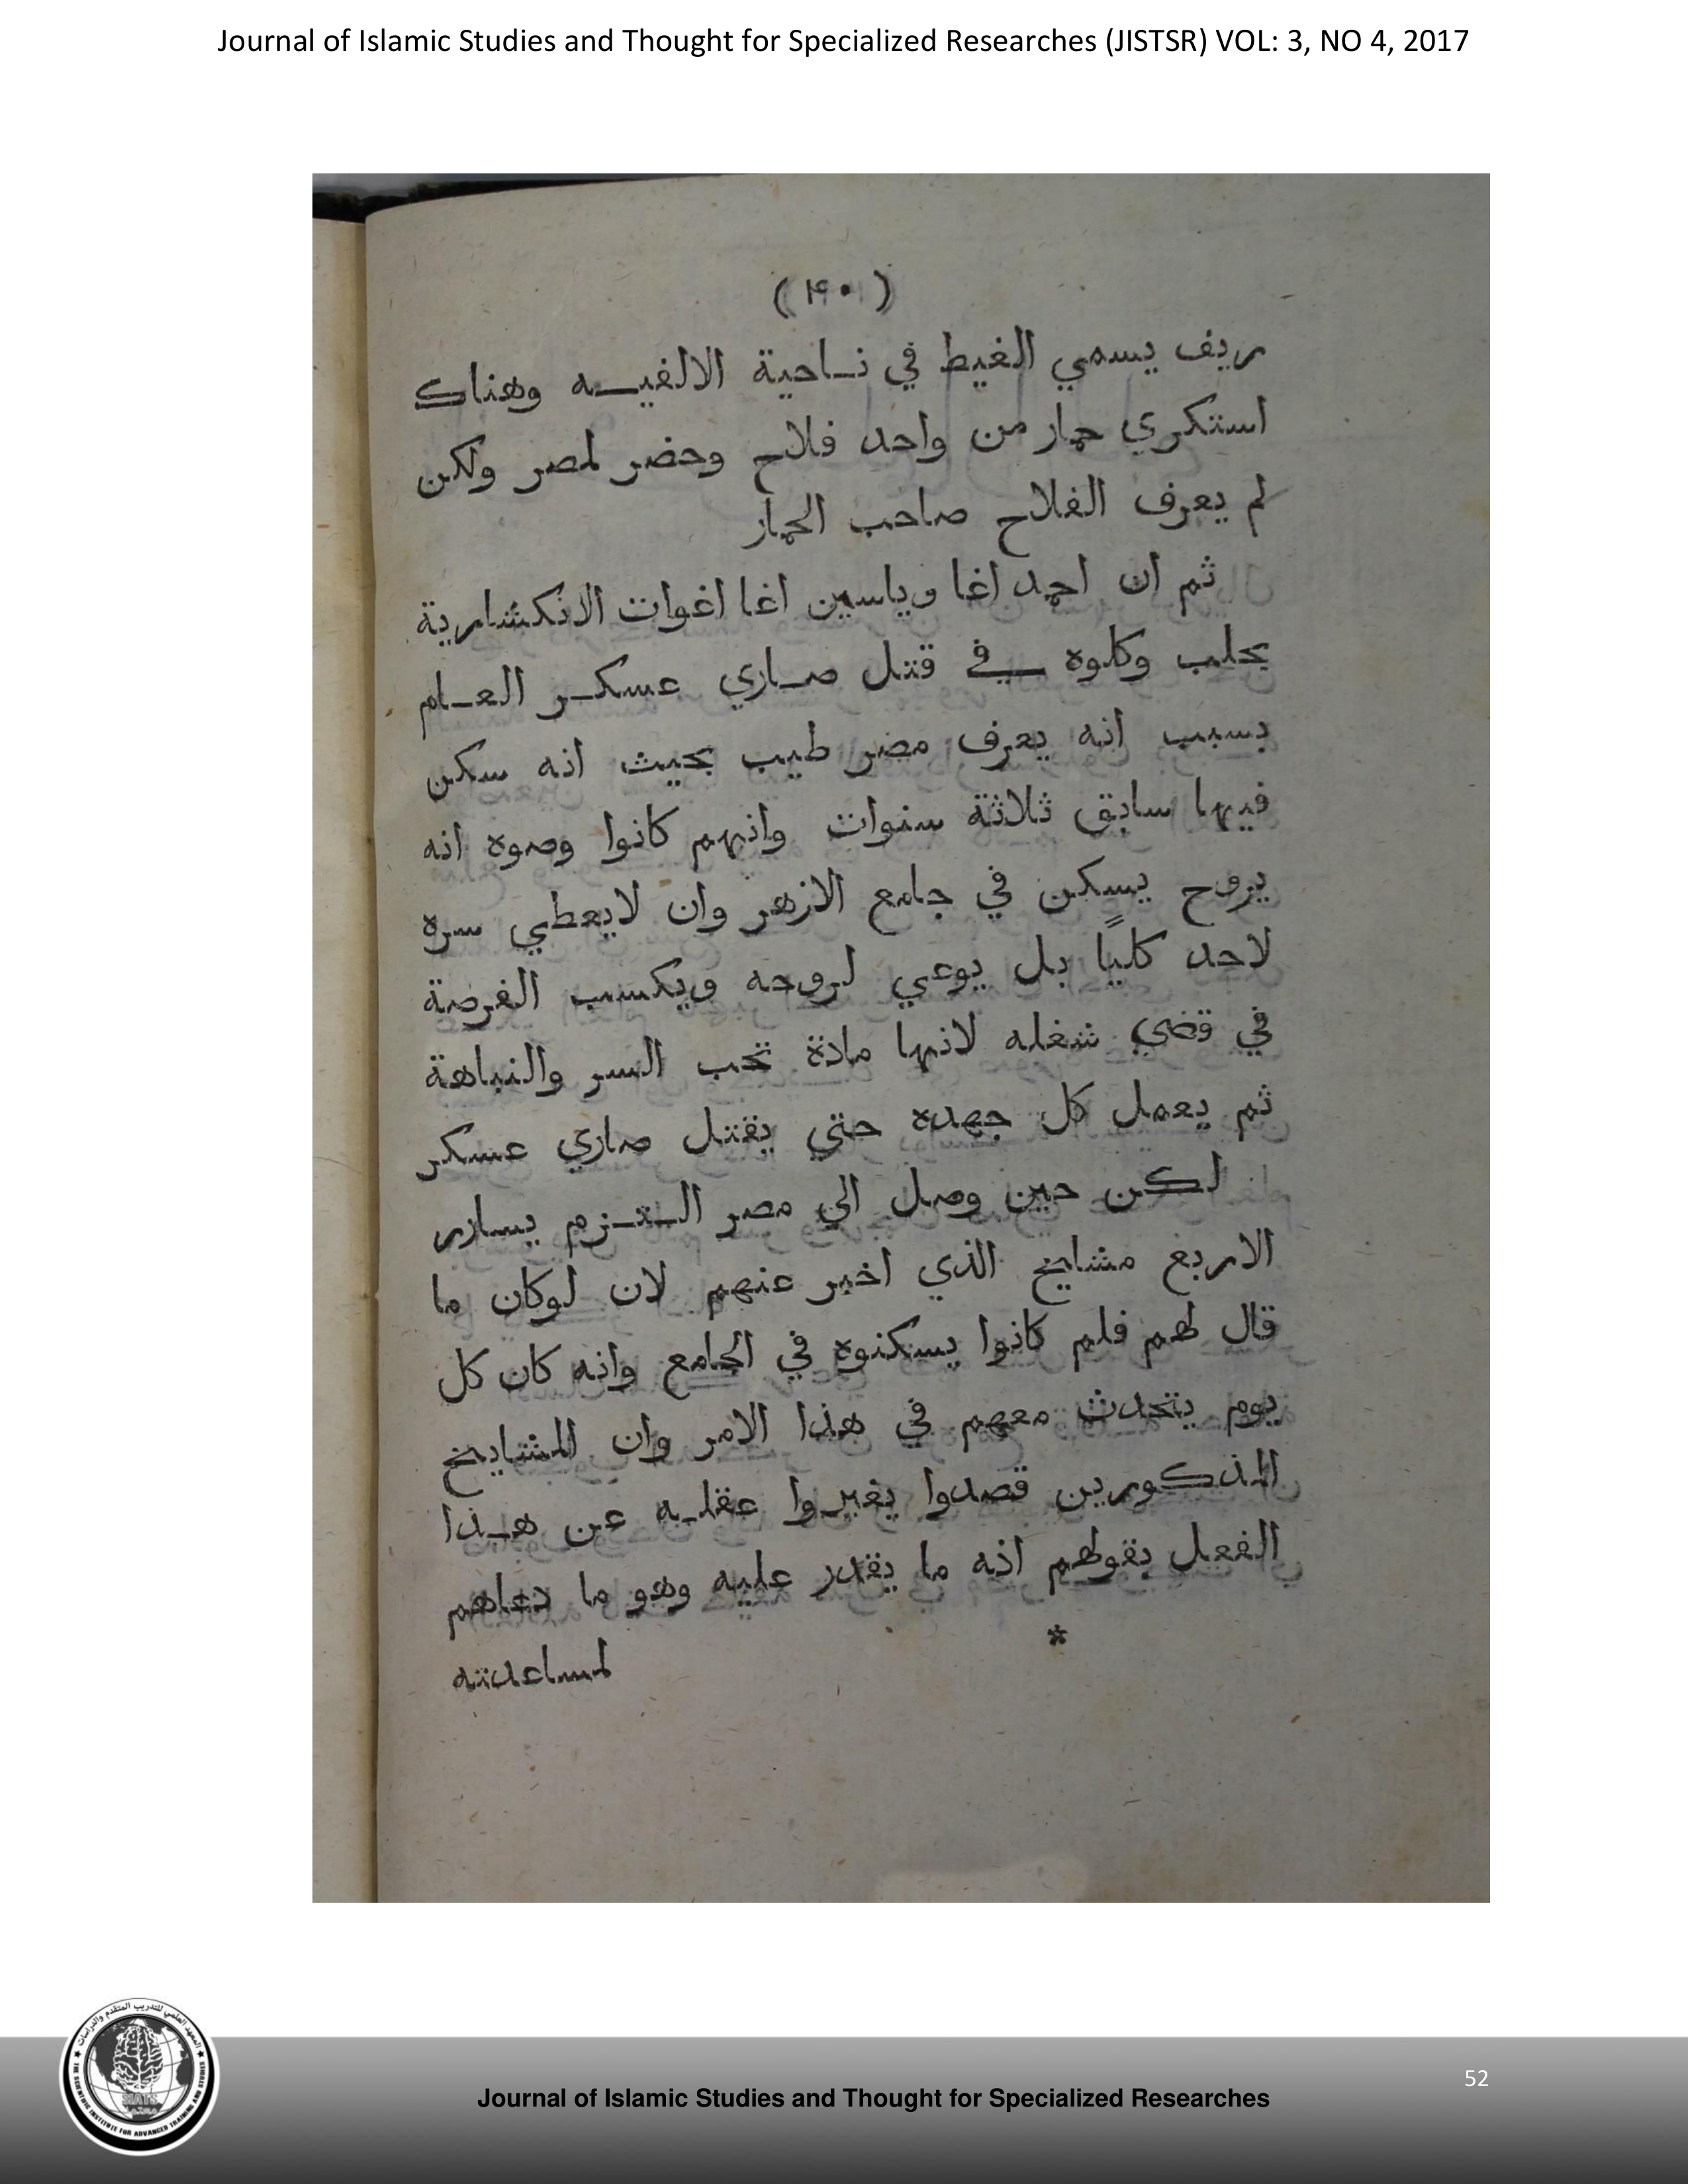 Journal of Islamic Studies and Thought for Specialized Researches (JISTSR) VOL: 3, NO 4, 2017
(۴۰)
ريف يسمي الغيط في ناحية الالفيه وهناك
استكري حمار من واحد فلاح وحضر لمصر ولكن
لم يعرف الفلاح صاحب الحمار
ثم ان احمد اغا وياسين اغا اغوات الانكشارية
بحلب وكلوه في قتل صاري عسكر العام
بسبب انه يعرف مصر طيب بحيث انه سكن
فيها سابق ثلاثة سنوات وانهم كانوا وصوه انه
يروح يسكن في جامع الازهر وان لايعطي سره
لاحد كليًا بل يوعي لروحه ويكسب الفرصة
في قضي شغله لانها مادة تحب السر والنباهة
ثم يعمل كل جهده حتي يقتل صاري عسكر
لكن حين وصل الي مصر التزم يسارر
الاربع مشايخ الذي اخبر عنهم لان لوكان ما
قال لهم فلم كانوا يسكنوه في الجامع وانه كان كل
يوم يتحدث معهم في هذا الامر وان المشايخ
المذكورين قصدوا يغيروا عقله عن هذا
الفعل بقولهم انه ما يقدر عليه وهو ما دعاهم
*
لمساعدته
52
Journal of Islamic Studies and Thought for Specialized Researches
المعهد العلمي للتدريب المتقدم والدراسات
THE SCIENTIFIC INSTITUTE FOR ADVANCED TRAINING AND STUDIES
SIATS